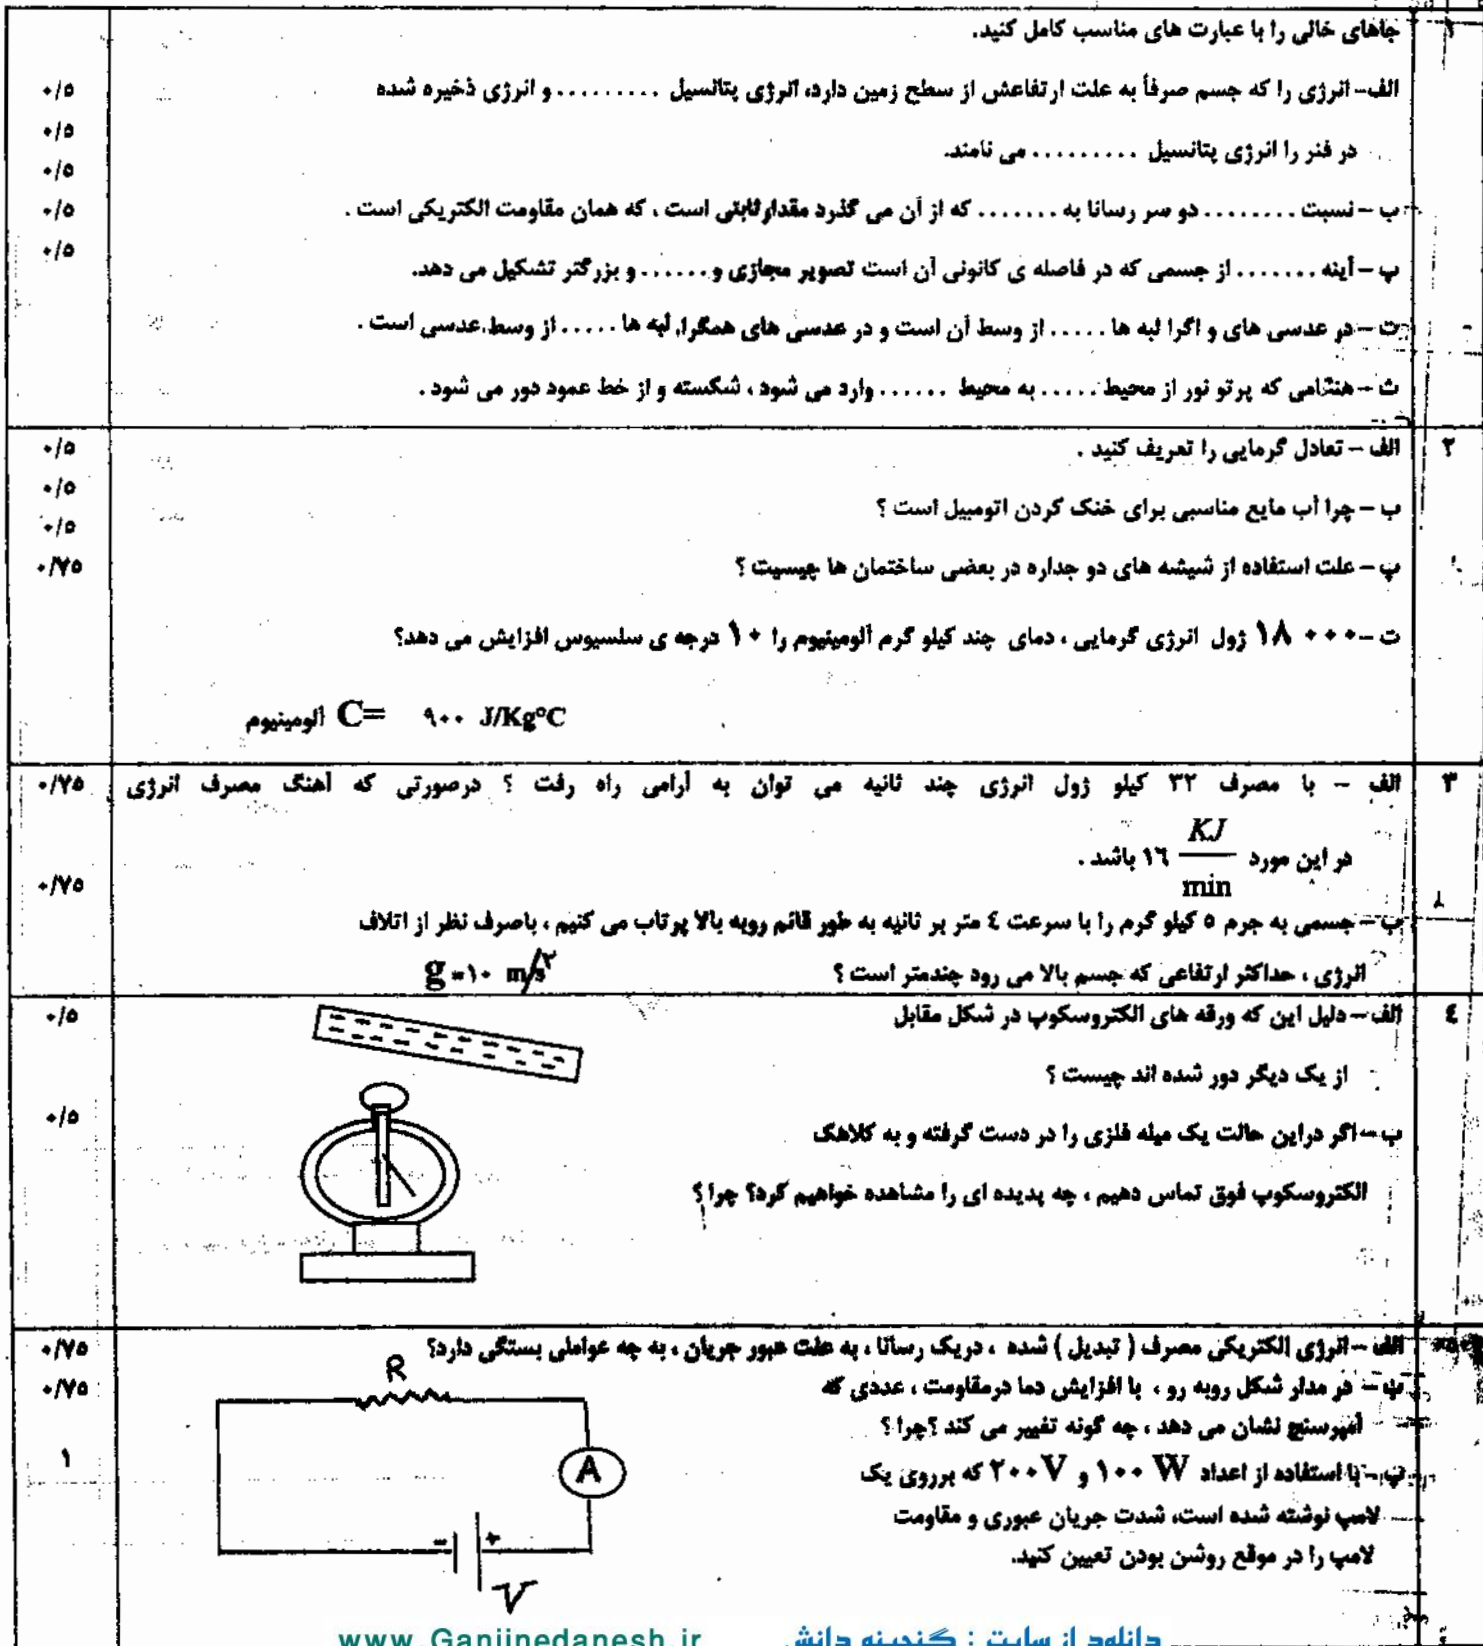 ۱
جاهای خالی را با عبارت های مناسب کامل کنید.
الف- انرژی را که جسم صرفاً به علت ارتفاعش از سطح زمین دارد، انرژی پتانسیل ......... و انرژی ذخیره شده
۰/۵
۰/۵
در فنر را انرژی پتانسیل ......... می نامند.
۰/۵
ب - نسبت ........ دو سر رسانا به ....... که از آن می گذرد مقدار ثابتی است ، که همان مقاومت الکتریکی است .
۰/۵
۰/۵
پ - آینه ....... از جسمی که در فاصله ی کانونی آن است تصویر مجازی و...... و بزرگتر تشکیل می دهد.
ت - در عدسی های و اگرا لبه ها ..... از وسط آن است و در عدسی های همگرا, لبه ها ..... از وسط عدسی است .
ث - هنگامی که پرتو نور از محیط ..... به محیط ...... وارد می شود ، شکسته و از خط عمود دور می شود .
۲
الف - تعادل گرمایی را تعریف کنید .
۰/۵
۰/۵
ب - چرا آب مایع مناسبی برای خنک کردن اتومبیل است ؟
۰/۵
پ - علت استفاده از شیشه های دو جداره در بعضی ساختمان ها چیسیت ؟
۰/۷۵
ت - ۱۸۰۰۰ ژول انرژی گرمایی ، دمای چند کیلو گرم آلومینیوم را ۱۰ درجه ی سلسیوس افزایش می دهد؟
آلومینیوم C= ۹۰۰ J/Kg°C
۳
الف - با مصرف ۳۲ کیلو ژول انرژی چند ثانیه می توان به آرامی راه رفت ؟ درصورتی که آهنگ مصرف انرژی
۰/۷۵
در این مورد ۱۶ KJ/min باشد .
۰/۷۵
ب - جسمی به جرم ۵ کیلو گرم را با سرعت ٤ متر بر ثانیه به طور قائم روبه بالا پرتاب می کنیم ، باصرف نظر از اتلاف
انرژی ، حداکثر ارتفاعی که جسم بالا می رود چندمتر است ؟ g=۱۰ m/s²
٤
الف - دلیل این که ورقه های الکتروسکوپ در شکل مقابل
۰/۵
از یک دیگر دور شده اند چیست ؟
ب - اگر دراین حالت یک میله فلزی را در دست گرفته و به کلاهک
۰/۵
الکتروسکوپ فوق تماس دهیم ، چه پدیده ای را مشاهده خواهیم کرد؟ چرا ؟
الف - انرژی الکتریکی مصرف ( تبدیل ) شده ، دریک رسانا ، به علت عبور جریان ، به چه عواملی بستگی دارد؟
۰/۷۵
ب - در مدار شکل روبه رو ، با افزایش دما درمقاومت ، عددی که
۰/۷۵
آمپرسنج نشان می دهد ، چه گونه تغییر می کند ؟چرا ؟
پ - با استفاده از اعداد ۱۰۰ W و ۲۰۰V که برروی یک
۱
لامپ نوشته شده است، شدت جریان عبوری و مقاومت
لامپ را در موقع روشن بودن تعیین کنید.
R
A
- +
V
دانلود از سایت : گنجینه دانش www.Ganjinedanesh.ir